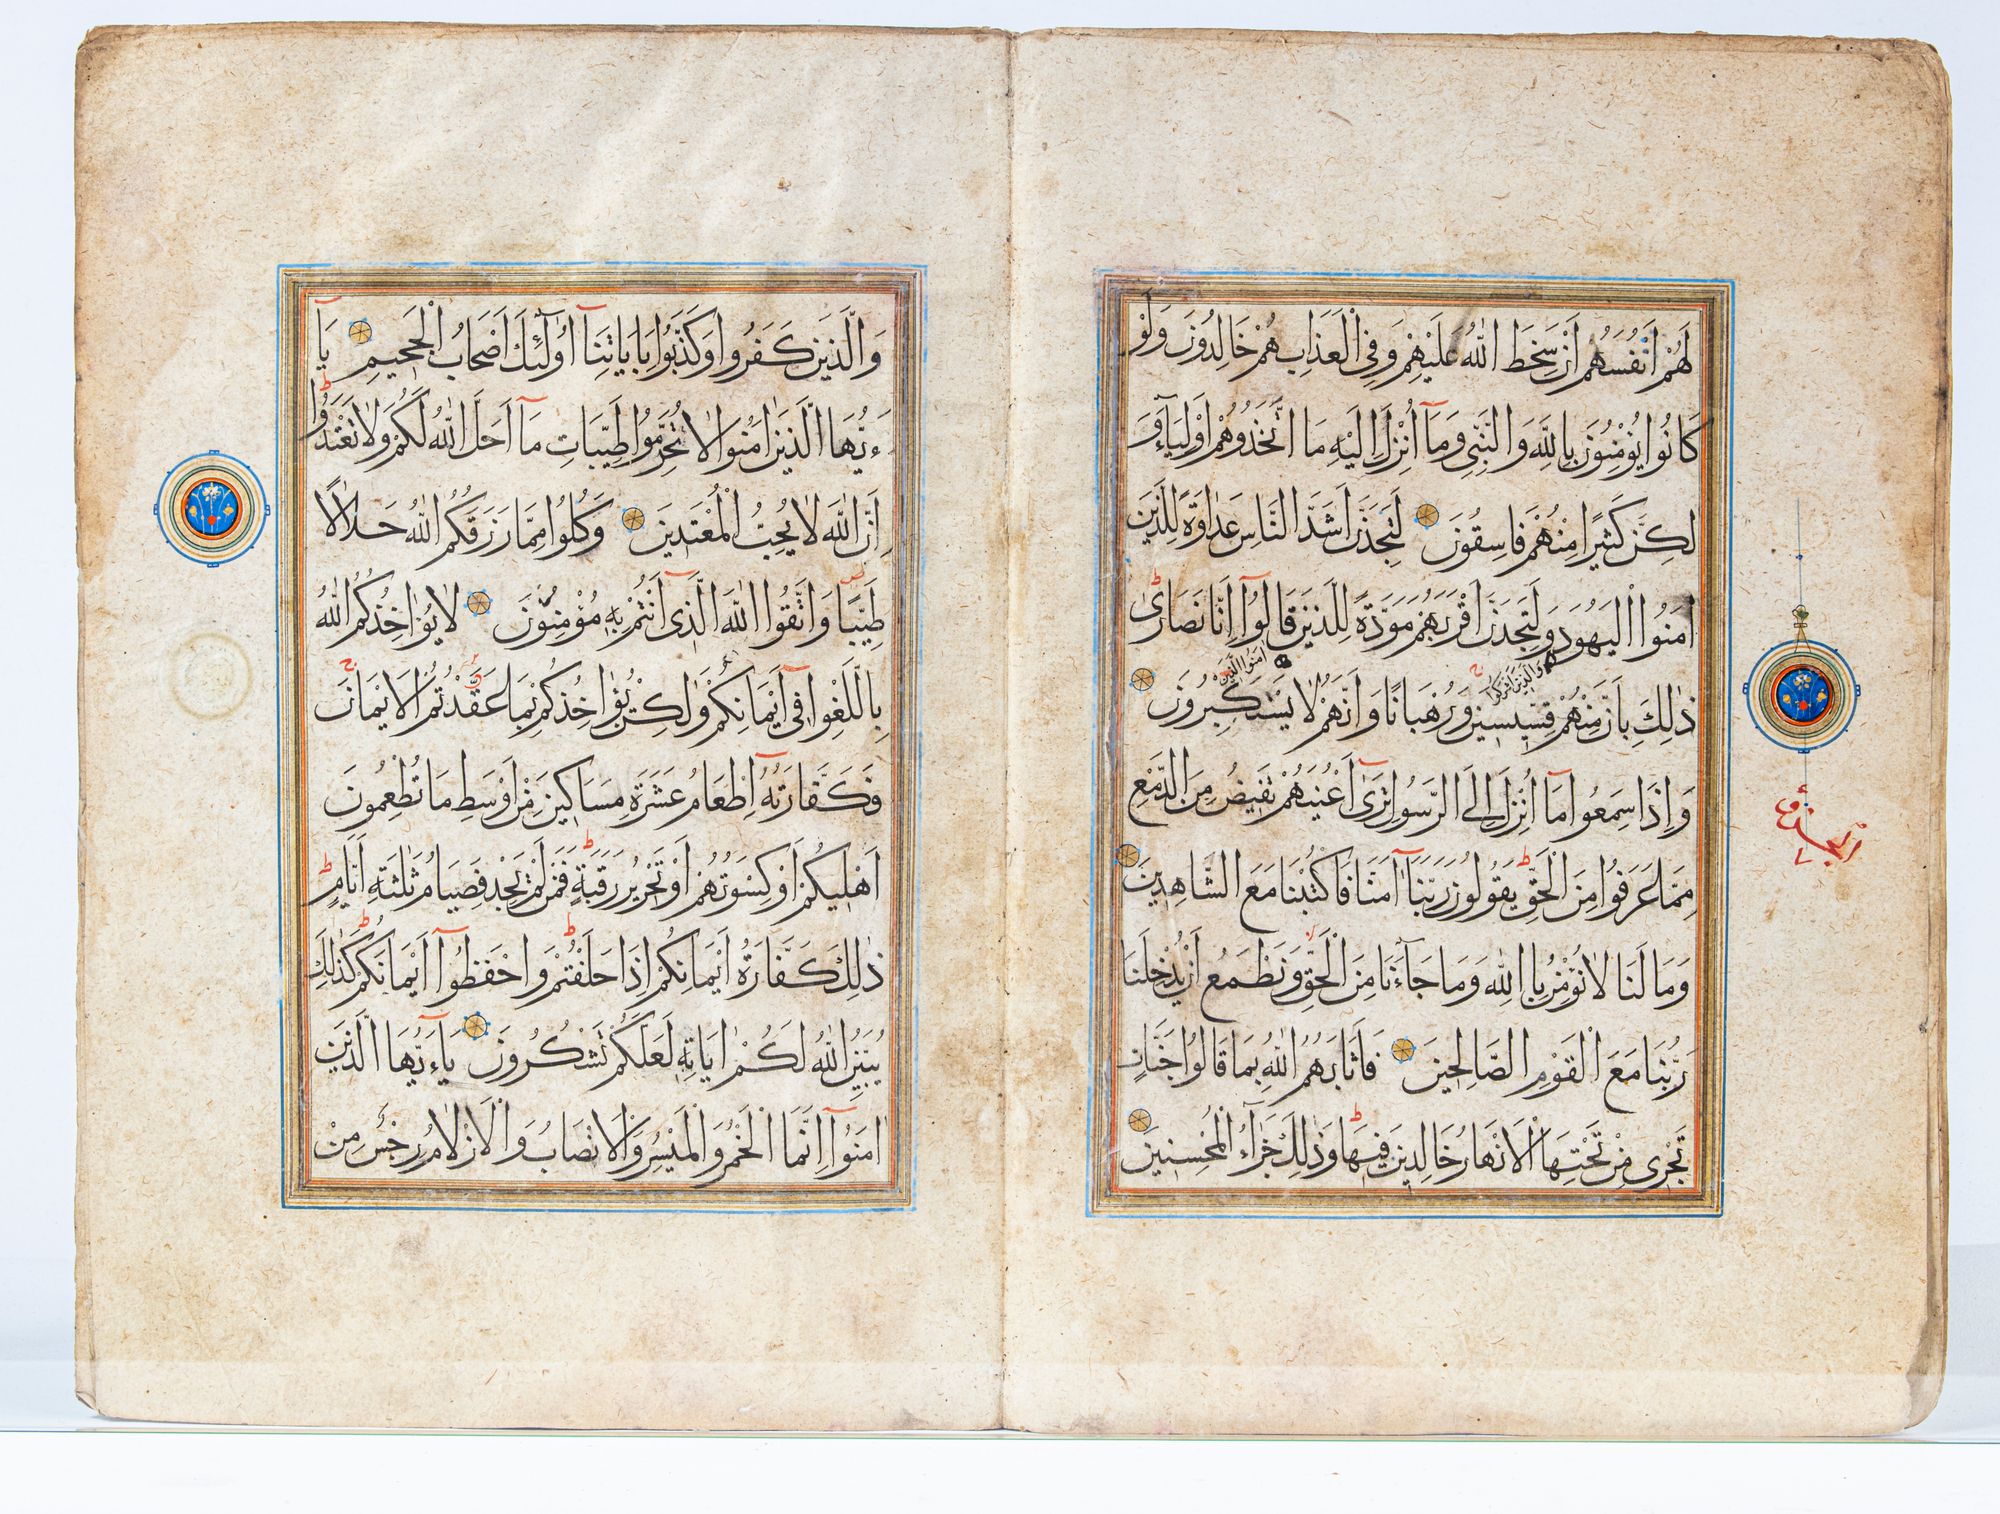 لَهُمْ اَنْفُسُهُمْ اَنْ سَخِطَ اللّٰهُ عَلَيْهِمْ وَفِى الْعَذَابِ هُمْ خَالِدُونَ وَلَوْ
كَانُوا يُؤْمِنُونَ بِاللّٰهِ وَالنَّبِىِّ وَمَآ اُنْزِلَ اِلَيْهِ مَا اتَّخَذُوهُمْ اَوْلِيَآءَ وَ
لٰكِنَّ كَثِيرًا مِنْهُمْ فَاسِقُونَ لَتَجِدَنَّ اَشَدَّ النَّاسِ عَدَاوَةً لِلَّذِينَ
اٰمَنُوا الْيَهُودَ وَلَتَجِدَنَّ اَقْرَبَهُمْ مَوَدَّةً لِلَّذِينَ قَالُوٓا اِنَّا نَصَارٰى
وَالَّذِينَ اَشْرَكُوا
اٰمَنُوا الَّذِينَ
ذٰلِكَ بِاَنَّ مِنْهُمْ قِسِّيسِينَ وَرُهْبَانًا وَاَنَّهُمْ لَا يَسْتَكْبِرُونَ
وَاِذَا سَمِعُوا مَآ اُنْزِلَ اِلَى الرَّسُولِ تَرٰٓى اَعْيُنَهُمْ تَفِيضُ مِنَ الدَّمْعِ
مِمَّا عَرَفُوا مِنَ الْحَقِّ يَقُولُونَ رَبَّنَآ اٰمَنَّا فَاكْتُبْنَا مَعَ الشَّاهِدِينَ
وَمَا لَنَا لَا نُؤْمِنُ بِاللّٰهِ وَمَا جَآءَنَا مِنَ الْحَقِّ وَنَطْمَعُ اَنْ يُدْخِلَنَا
رَبُّنَا مَعَ الْقَوْمِ الصَّالِحِينَ فَاَثَابَهُمُ اللّٰهُ بِمَا قَالُوا جَنَّاتٍ
تَجْرِى مِنْ تَحْتِهَا الْاَنْهَارُ خَالِدِينَ فِيهَا وَذٰلِكَ جَزَآءُ الْمُحْسِنِينَ
الجزء
٧
وَالَّذِينَ كَفَرُوا وَكَذَّبُوا بِاٰيَاتِنَآ اُولٰٓئِكَ اَصْحَابُ الْجَحِيمِ يَا
ءَيُّهَا الَّذِينَ اٰمَنُوا لَا تُحَرِّمُوا طَيِّبَاتِ مَآ اَحَلَّ اللّٰهُ لَكُمْ وَلَا تَعْتَدُوا
اِنَّ اللّٰهَ لَا يُحِبُّ الْمُعْتَدِينَ وَكُلُوا مِمَّا رَزَقَكُمُ اللّٰهُ حَلَالًا
طَيِّبًا وَاتَّقُوا اللّٰهَ الَّذِىٓ اَنْتُمْ بِهِ مُؤْمِنُونَ لَا يُؤَاخِذُكُمُ اللّٰهُ
بِاللَّغْوِ فِىٓ اَيْمَانِكُمْ وَلٰكِنْ يُؤَاخِذُكُمْ بِمَا عَقَّدْتُمُ الْاَيْمَانَ
فَكَفَّارَتُهُٓ اِطْعَامُ عَشَرَةِ مَسَاكِينَ مِنْ اَوْسَطِ مَا تُطْعِمُونَ
اَهْلِيكُمْ اَوْ كِسْوَتُهُمْ اَوْ تَحْرِيرُ رَقَبَةٍ فَمَنْ لَمْ يَجِدْ فَصِيَامُ ثَلٰثَةِ اَيَّامٍ
ذٰلِكَ كَفَّارَةُ اَيْمَانِكُمْ اِذَا حَلَفْتُمْ وَاحْفَظُوٓا اَيْمَانَكُمْ كَذٰلِكَ
يُبَيِّنُ اللّٰهُ لَكُمْ اٰيَاتِهِ لَعَلَّكُمْ تَشْكُرُونَ يَآءَيُّهَا الَّذِينَ
اٰمَنُوٓا اِنَّمَا الْخَمْرُ وَالْمَيْسِرُ وَالْاَنْصَابُ وَالْاَزْلَامُ رِجْسٌ مِنْ